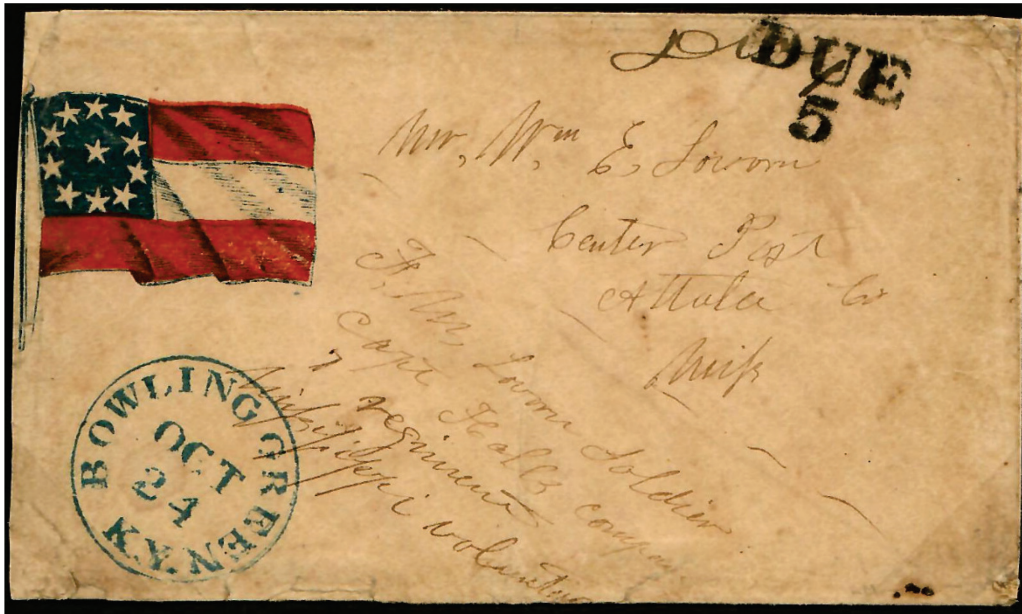 Due
DUE
5
Mr, Wm E, Lovorn
Center Post
Attala Co
Miss
F, M, Lovorn Soldier
Capt Halls company
7 regiment
Missisippi volunteers
BOWLING GREEN
OCT
24
K.Y.